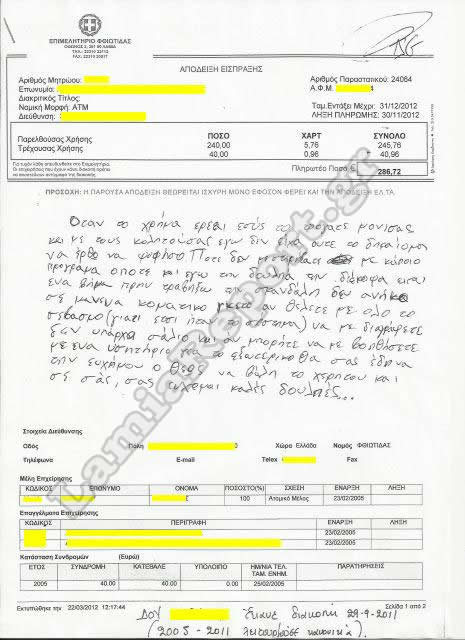 ΕΠΙΜΕΛΗΤΗΡΙΟ ΦΘΙΩΤΙΔΑΣ
ΑΠΟΔΕΙΞΗ ΕΙΣΠΡΑΞΗΣ
Αριθμός Μητρώου:
Επωνυμία :
Διακριτικός Τίτλος:
Νομική Μορφή: ΑΤΜ
Διεύθυνση :
Αριθμός Παραστατικού: 24064
Α.Φ.Μ. 4
Ταμ.Εντάξει Μέχρι: 31/12/2012
ΛΗΞΗ ΠΛΗΡΩΜΗΣ: 30/11/2012
ΠΟΣΟ ΧΑΡΤ ΣΥΝΟΛΟ
Παρελθούσας Χρήσης 240,00 5,76 245,76
Τρέχουσας Χρήσης 40,00 0,96 40,96
Πληρωτέο Ποσό € 286,72
ΠΡΟΣΟΧΗ: Η ΠΑΡΟΥΣΑ ΑΠΟΔΕΙΞΗ ΘΕΩΡΕΙΤΑΙ ΙΣΧΥΡΗ ΜΟΝΟ ΕΦΟΣΟΝ ΦΕΡΕΙ ΚΑΙ ΤΗΝ ΑΠΟΔΕΙΞΗ ΕΛ.ΤΑ.
Οταν το χρήμα εσείς το
και με τους εγω δεν είχα ουτε το δικαίωμα
να ερθω να ψηφησω Ποτέ δεν με κάποιο
προγραμα οποτε και εγω την την διεκοψα ειμαι
ενα βήμα πριν τραβήξω την σκανδάλη δεν ανήκω
σε κανενα κοματικο αν θέλετε με ολο το
σεβασμο (γιατι ετσι ηταν το συστημα) να με διαγράψετε
δεν υπάρχει σάλιο και αν μπορήτε να με βοηθήσετε
με ενα για το εξωτερικο θα σας εδινα
την ευχη μου ο Θεος να βαλη το χερη του και
σε σάς, σας ευχομαι καλές δουλειές...
Lamiareport.gr
Στοιχεία Διεύθυνσης
Οδός Πόλη Χώρα Ελλάδα Νομός ΦΘΙΩΤΙΔΑΣ
Τηλέφωνα E-mail Telex Fax
Μέλη Επιχείρησης
ΚΩΔΙΚΟΣ ΕΠΩΝΥΜΟ ΟΝΟΜΑ ΠΟΣΟΣΤΟ(%) ΣΧΕΣΗ ΕΝΑΡΞΗ ΛΗΞΗ
100 Ατομικό Μέλος 23/02/2005
Επαγγέλματα Επιχείρησης
ΚΩΔΙΚΟΣ ΠΕΡΙΓΡΑΦΗ ΕΝΑΡΞΗ ΛΗΞΗ
23/02/2005
23/02/2005
Κατάσταση Συνδρομών (Ευρώ)
ΕΤΟΣ ΣΥΝΔΡΟΜΗ ΚΑΤΕΒΑΛΕ ΥΠΟΛΟΙΠΟ ΗΜ/ΝΙΑ ΤΕΛ. ΤΑΜ. ΕΝΗΜ. ΠΑΡΑΤΗΡΗΣΕΙΣ
2005 40.00 40.00 0.00 25/02/2005
Εκτυπώθηκε την 22/03/2012 12:17:44
Σελίδα 1 από 2
ΔΟΥ Εκανε διακοπή 29-9-2011
(2005-2011 λειτουργουσε κανονικα)